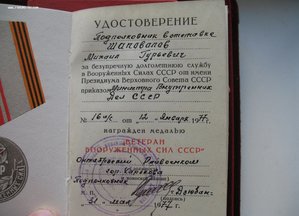 УДОСТОВЕРЕНИЕ
Подполковник в отставке
Шаповалов
Михаил Гурьевич
за безупречную долголетнюю службу
в Вооруженных Силах СССР от имени
Президиума Верховного Совета СССР
приказом Министра Внутренних
Дел СССР
от 12 Января 1977 г.
награжден медалью
"ВЕТЕРАН
ВООРУЖЕННЫХ СИЛ СССР"
Октябрьский Райвоенком
гор. Харькова
Подполковник
М. П.
(подпись)
31 мая 1977 г.